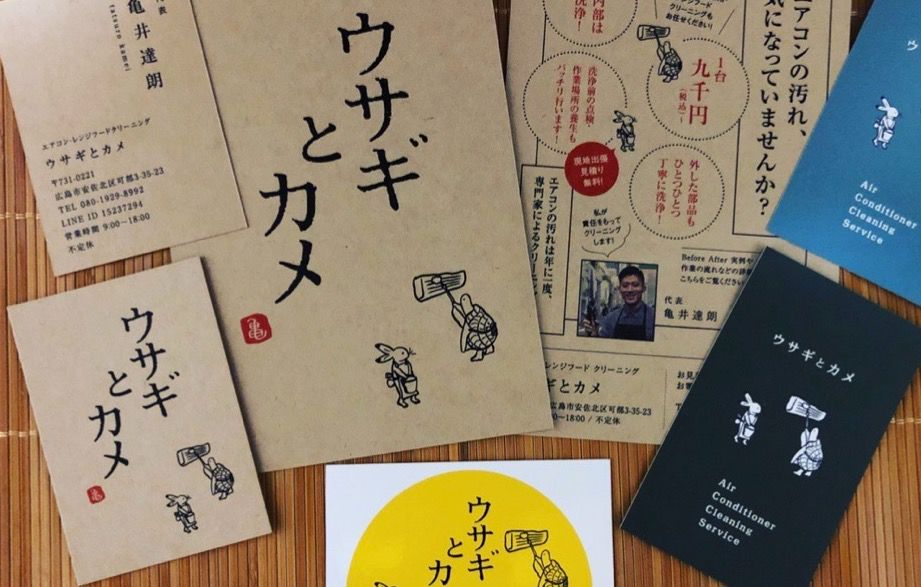 代表
亀井達朗
エアコン・レンジフードクリーニング
ウサギとカメ
〒731-0221
広島市安佐北区可部3-35-23
TEL 080-1929-8992
LINE ID 15237294
営業時間 9:00〜18:00
不定休
ウサギ
と
カメ
亀
エアコンの汚れ、
気になっていませんか?
クリーニングも
お任せください!
内部は
洗浄!
1台
九千円
(税込)〜
洗浄前の点検、
作業場所の養生も
バッチリ行います!
現地出張
見積り
無料!
外した部品も
ひとつひとつ
丁寧に洗浄!
エアコンの汚れは年に一度、
専門家によるクリーニ
私が
責任をもって
クリーニング
します!
Before After 実例や
作業の流れなどの詳
こちらをご覧ください
代表
亀井達朗
レンジフード クリーニング
ギとカメ
広島市安佐北区可部3-35-23
〜18:00 / 不定休
ウサギ
と
カメ
亀
ウサギ
と
カ
ウサギとカメ
Air
Conditioner
Cleaning
Service
ウ
Air
Conditioner
Cleaning
Service